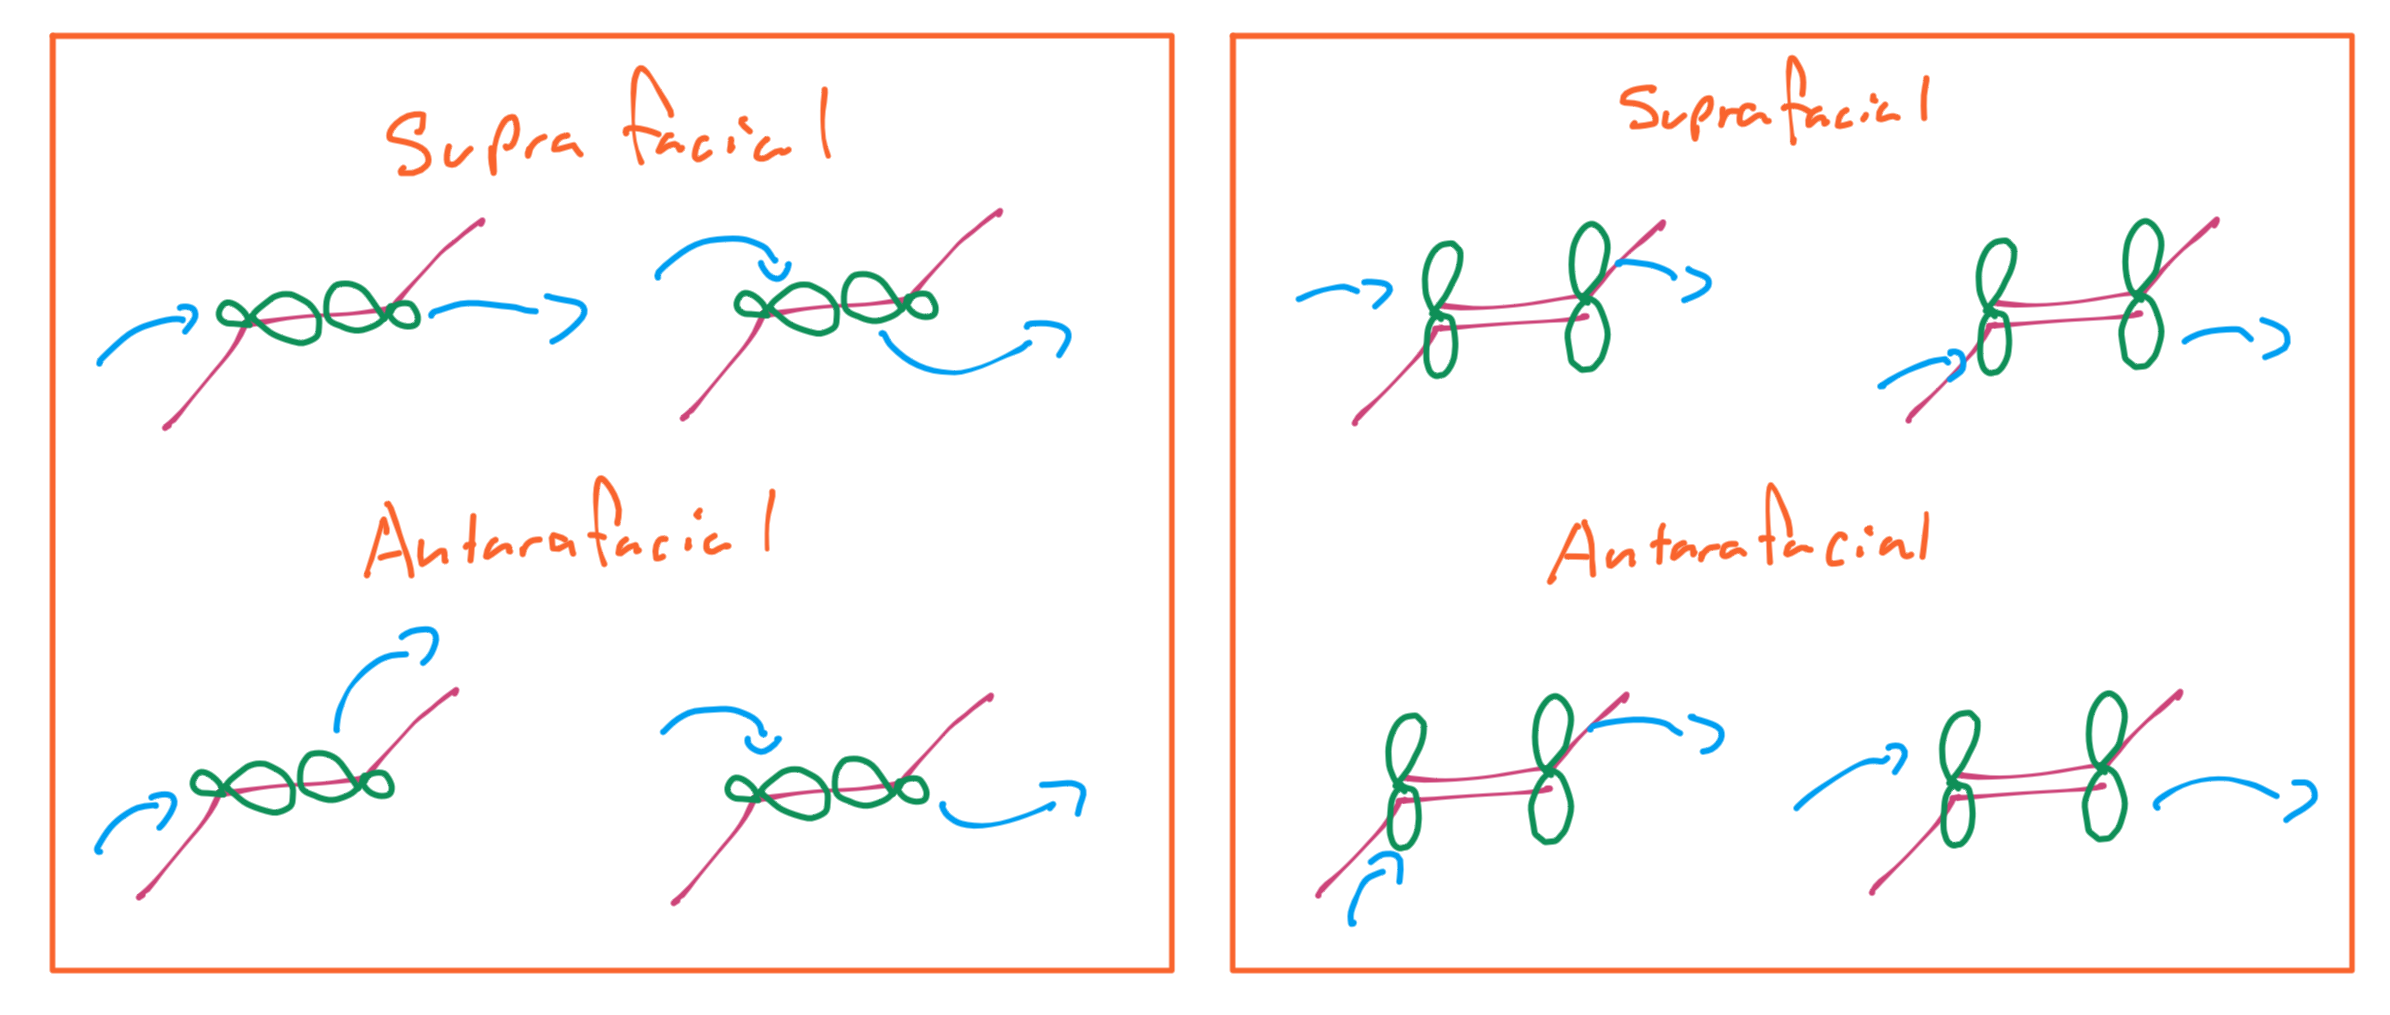 Suprafacial
Antarafacial
Suprafacial
Antarafacial